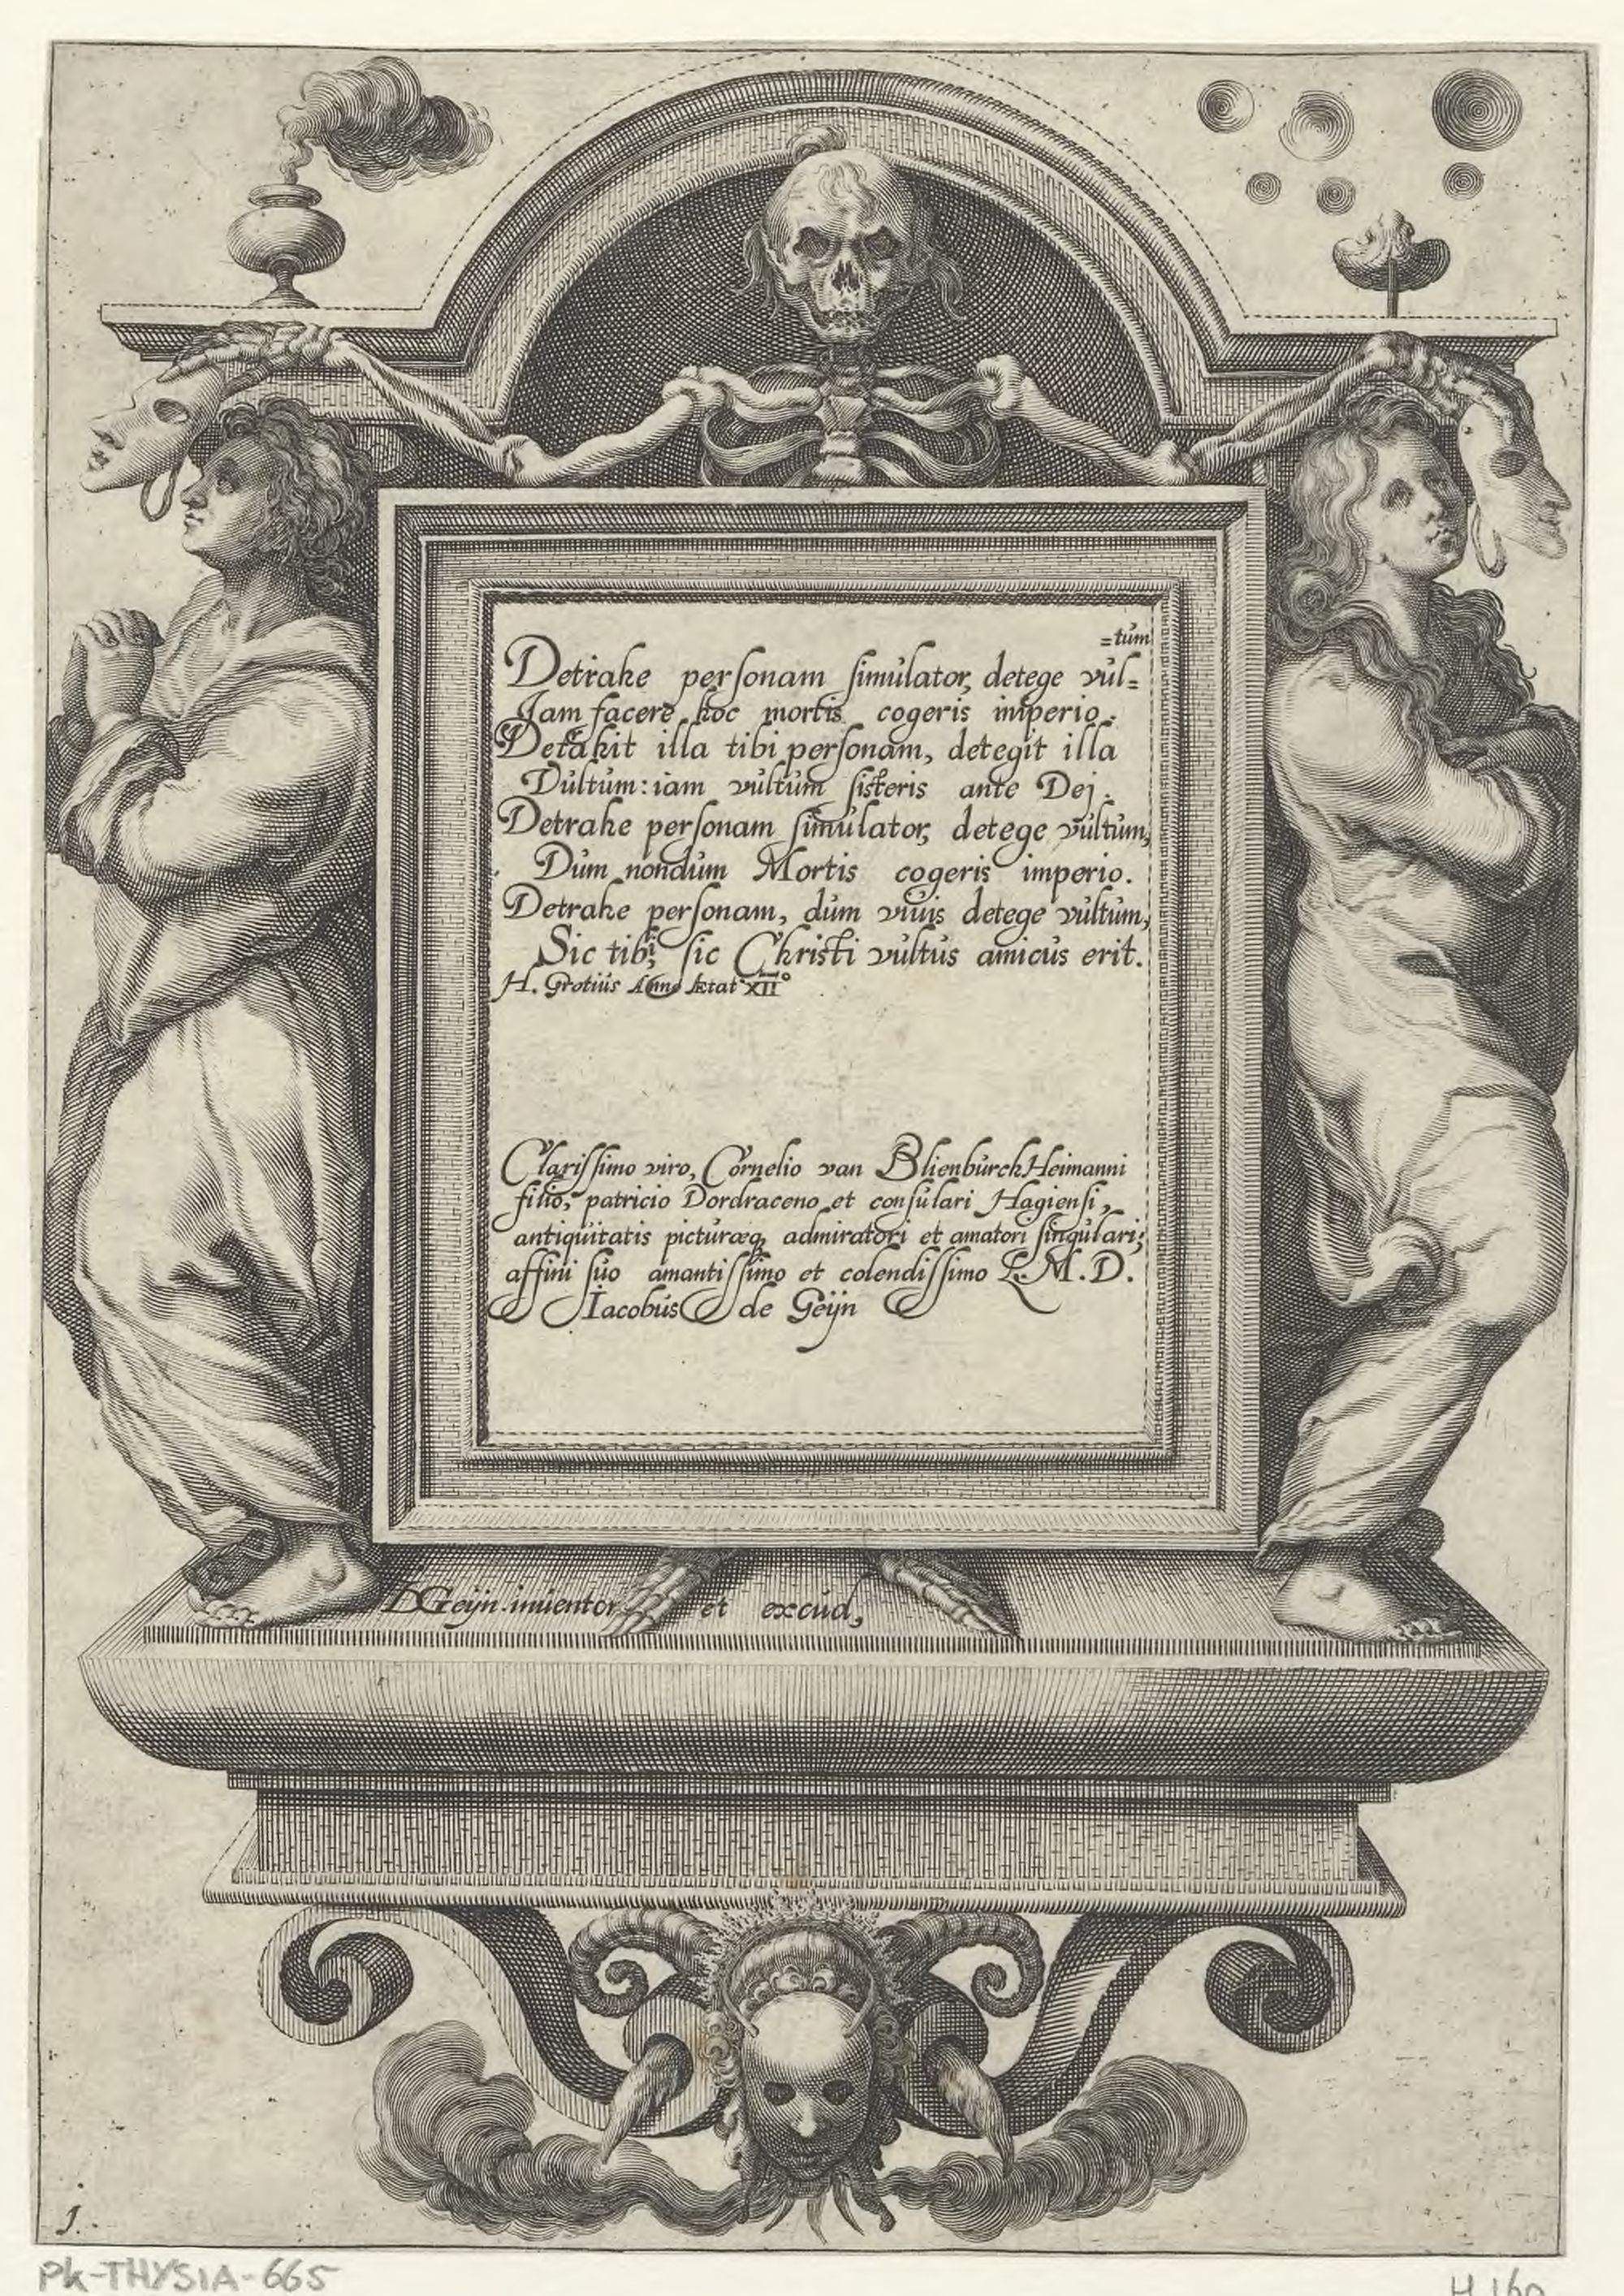 =tum
Detrahe personam simulator, detege vul=
Jam facere hoc mortis cogeris imperio.
Detrahit illa tibi personam, detegit illa
Vultum: iam vultum sisteris ante Dei.
Detrahe personam simulator, detege vultum,
Dum nondum Mortis cogeris imperio.
Detrahe personam, dum viuis detege vultum,
Sic tibi, sic Christi vultus amicus erit.
H. Grotius Anno Ætat XII°
Clarissimo viro, Cornelio van Blienburch Heimanni
filio, patricio Dordraceno et consulari Hagiensi,
antiquitatis picturæq, admiratori et amatori singulari;
affini suo amantissimo et colendissimo L.M.D.
Iacobus de Geijn
DGeijn.inuentor et excud,
1.
PK-THYSIA-665
H 160